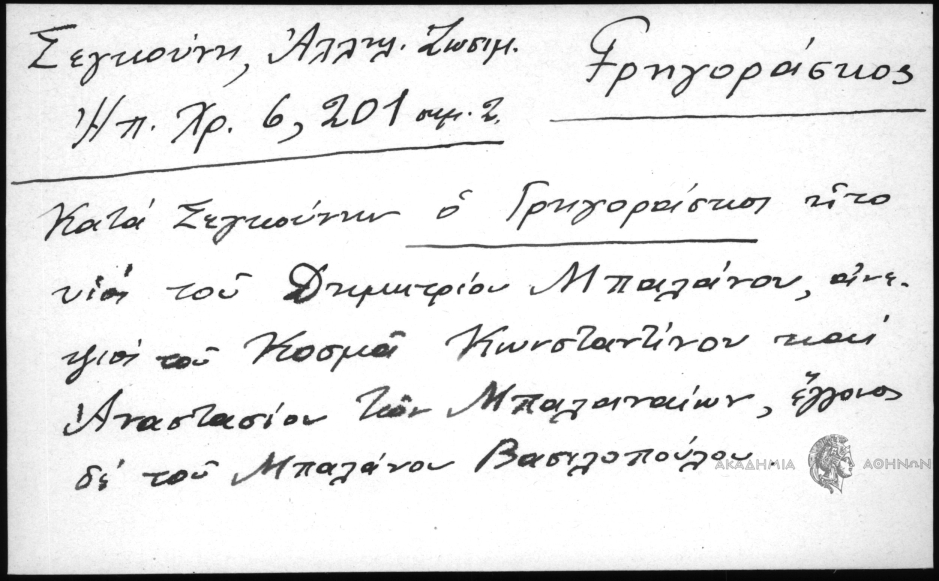 Σεγκούνη, Ἀλλη. Ζωσιμ.
Γρηγοράσκος
Ἠπ. Χρ. 6, 201 σημ. 2.
Κατά Σεγκούνην ὁ Γρηγοράσκος ἦτο
υἱός τοῦ Δημητρίου Μπαλάνου, ἀνε-
ψιός τοῦ Κοσμᾶ Κωνσταντίνου καί
Ἀναστασίου τῶν Μπαλαναίων, ἔγγονος
δέ τοῦ Μπαλάνου Βασιλοπούλου.
ΑΚΑΔΗΜΙΑ ΑΘΗΝΩΝ